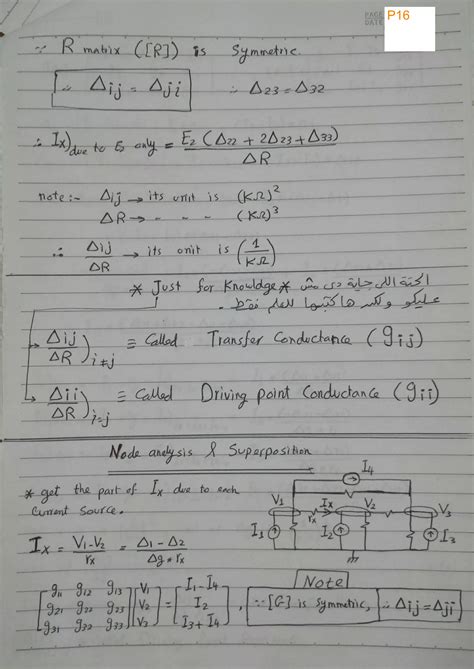 PAGE P16
DATE
∵ R matrix ([R]) is Symmetric.
∴ Δij = Δji   ∴ Δ23 = Δ32
∴ Ix)due to E2 only = E2 (Δ22 + 2Δ23 + Δ33) / ΔR
note:- Δij → its unit is (KΩ)²
ΔR → - - - (KΩ)³
∴ Δij/ΔR → its unit is (1/KΩ)
* Just for Knowldge * الحتة اللى جاية دى مش
عليكو ولكن هاكتبها للعلم فقط.
Δij/ΔR)i≠j ≡ Called Transfer Conductance (gij)
Δii/ΔR)i=j ≡ Called Driving point Conductance (gii)
Node analysis & Superposition
* get the part of Ix due to each
Current Source.
I4
V1 Ix V2 V3
rx
I1 I2 I3
Ix = V1-V2 / rx = Δ1 - Δ2 / Δg * rx
Note
[g11 g12 g13] [V1] = [I1 - I4]
[g21 g22 g23] [V2] = [I2] , ∵ [G] is Symmetric, ∴ Δij = Δji
[g31 g32 g33] [V3] = [I3 + I4]